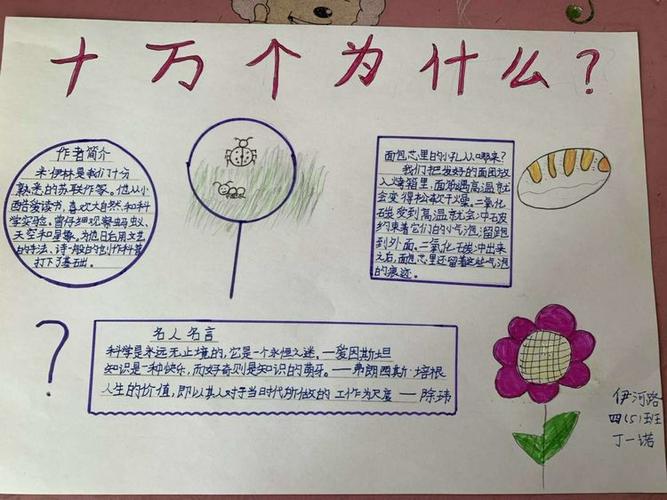 十万个为什么？
作者简介
米·伊林是我们十分
熟悉的苏联作家。他从小
酷爱读书，喜欢大自然和科
学实验。曾仔细观察蚂蚁、
天空和星象。为他日后用文艺
的手法、诗一般的创作科普
打下了基础。
面包芯里的小孔从哪来？
我们把发好的面团放
入烤箱里，面筋遇高温就
会变得松软干燥。二氧化
碳受到高温就会冲出发
约束着它们的小气泡，溜跑
到外面。二氧化碳冲出来
之后，面包芯里还留着这些气泡
的痕迹。
？
名人名言
科学是永远无止境的，它是一个永恒之迷。—爱因斯坦
知识是一种快乐，而好奇则是知识的萌牙。——弗朗西斯·培根
人生的价值，即以其人对于当时代所做的工作为尺度 —— 陈玮
伊河路
四（5）班
丁一诺